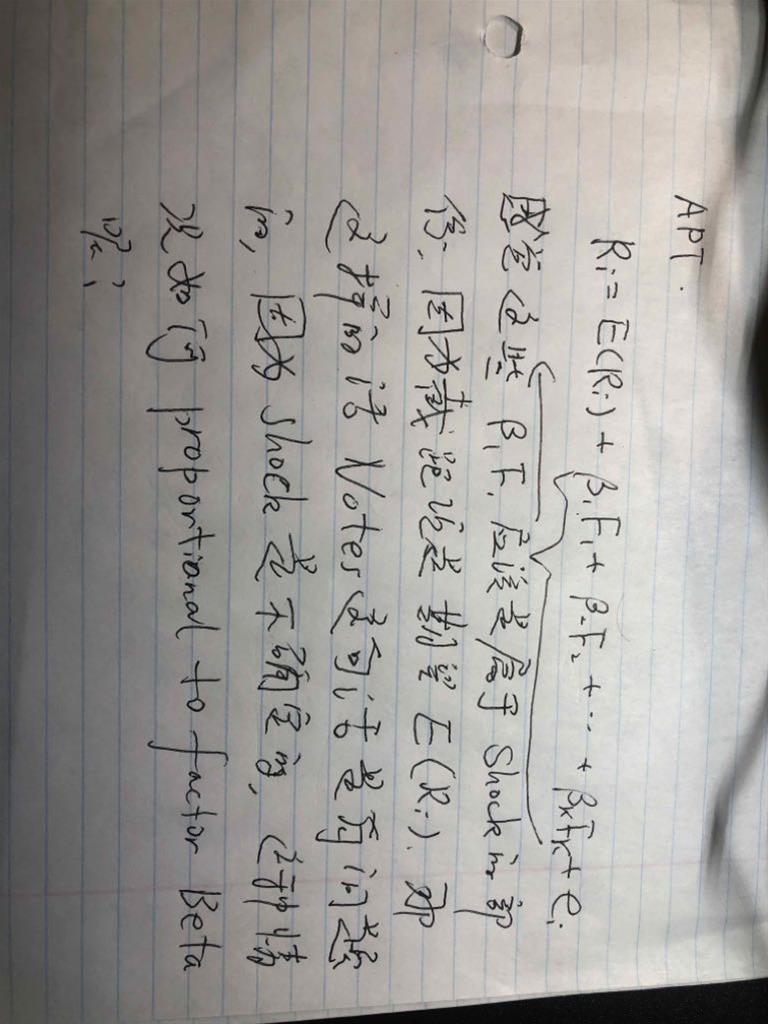 APT.
Ri = E(Ri) + β1F1 + β2F2 + ... + βKFK + ei
这些 β1F1 应该是属于 Shock的部
份, 因为截距项是期望 E(Ri). 那
这样的话 Notes这句话是有问题
的, 因为 Shock是不确定的, 这种情
况如何 proportional to factor Beta
呢?